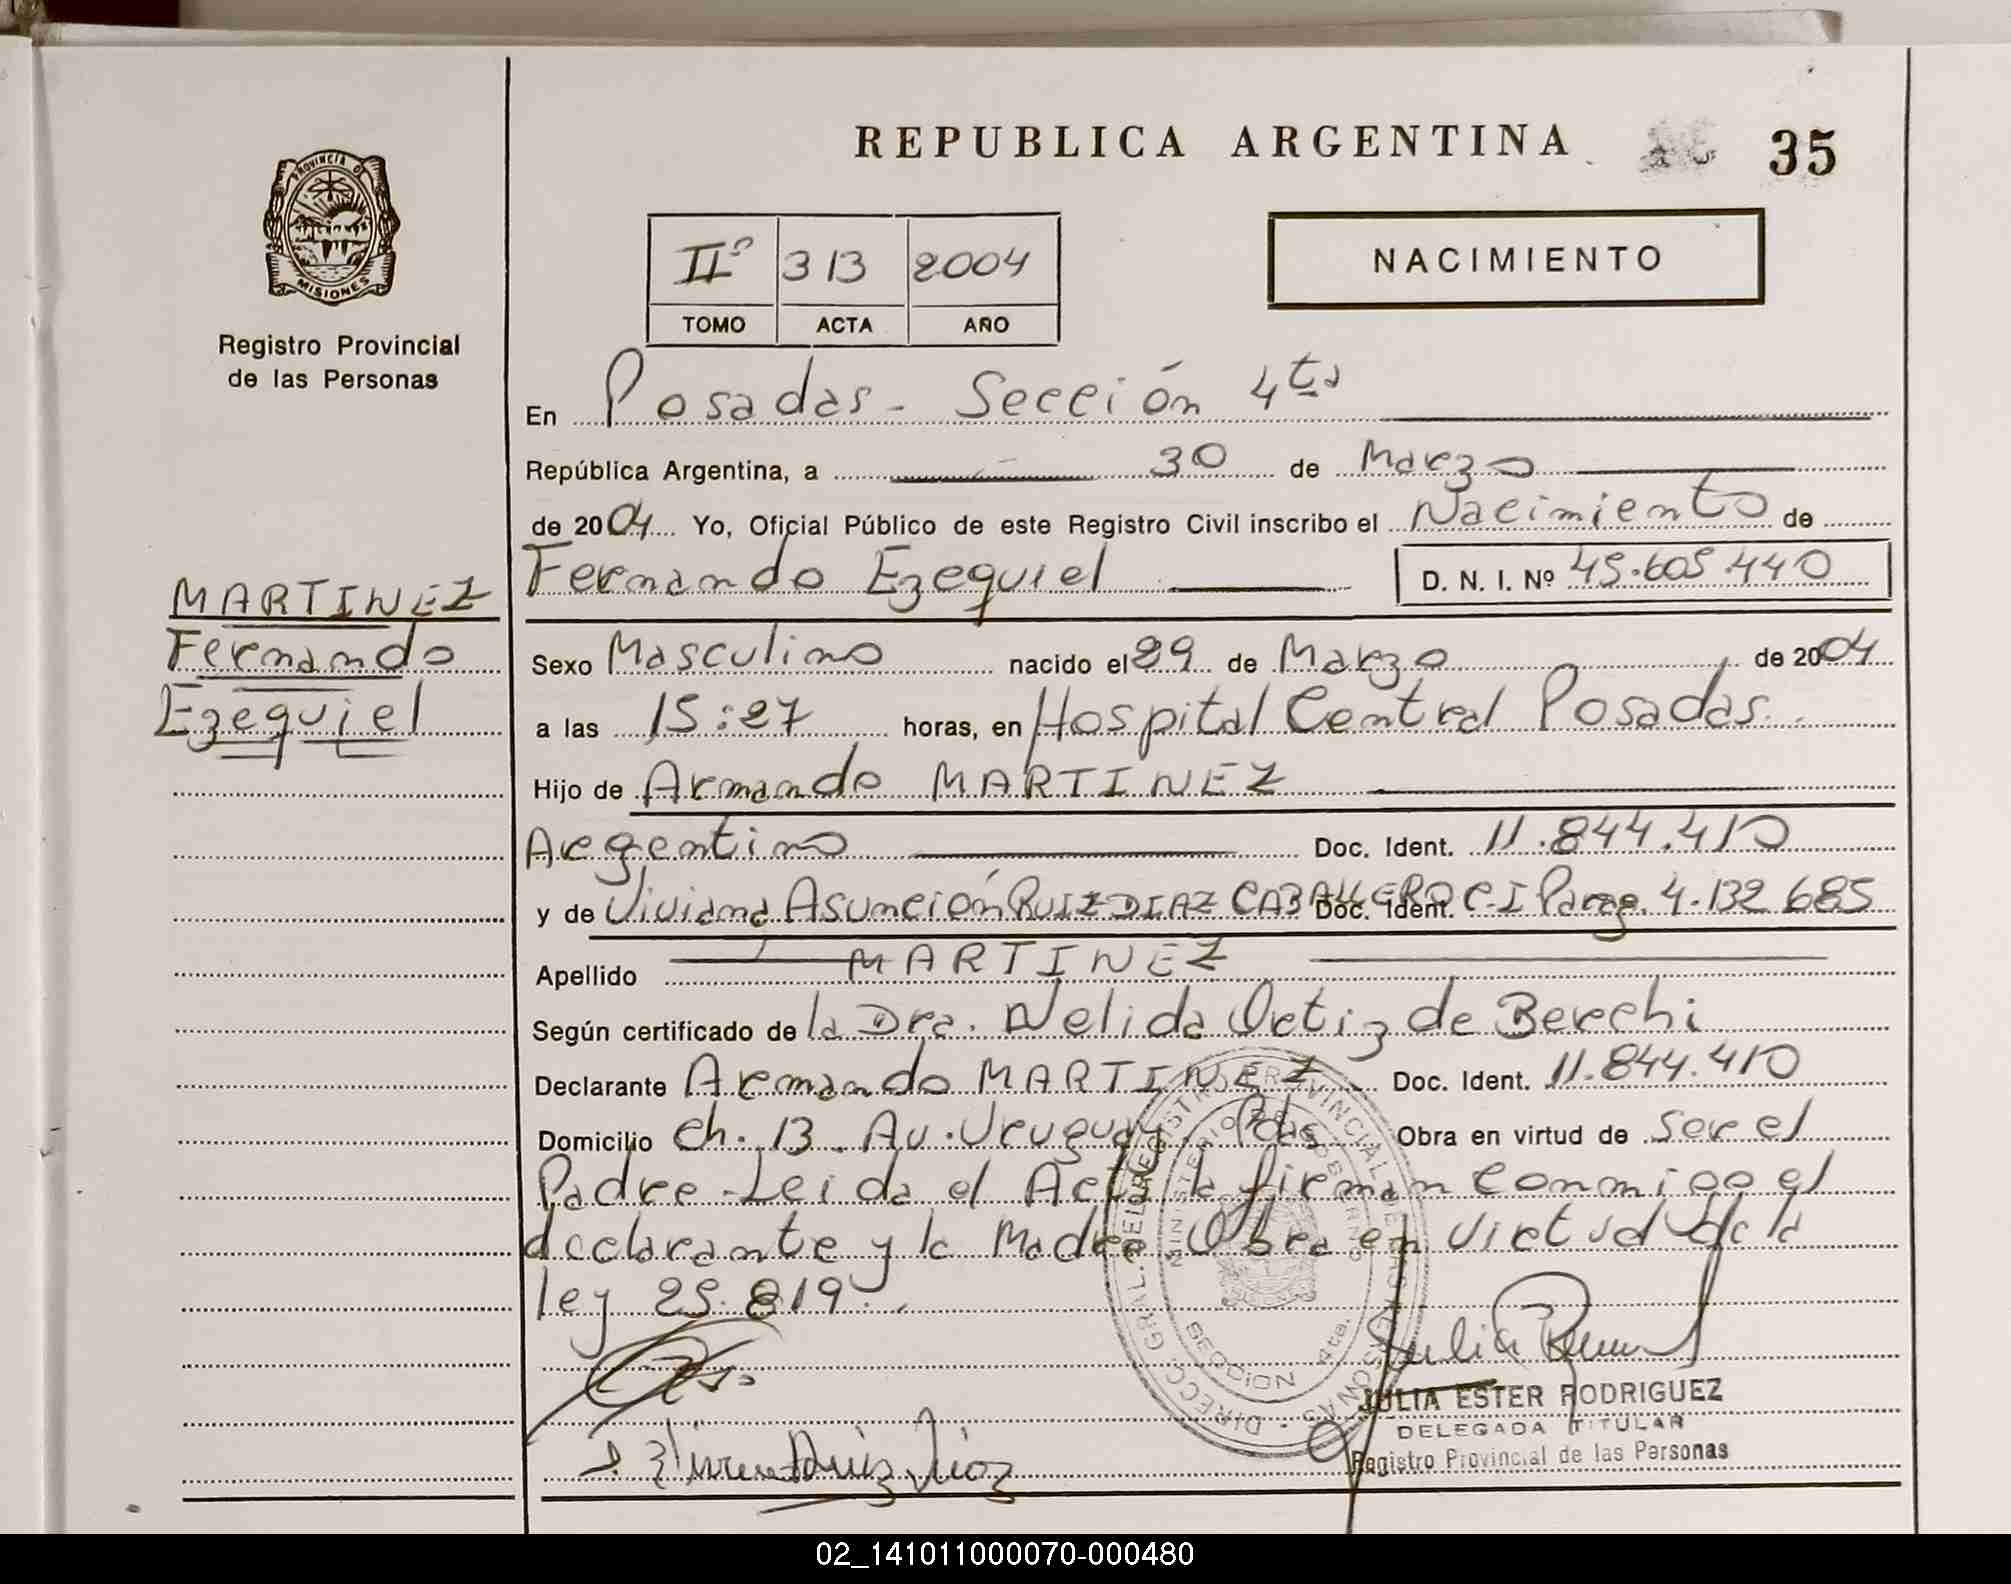 REPUBLICA ARGENTINA 35
PROVINCIA DE
MISIONES
Registro Provincial
de las Personas
IIº 313 2004
TOMO ACTA AÑO
NACIMIENTO
En Posadas - Sección 4ta
República Argentina, a 30 de Marzo
de 2004 Yo, Oficial Público de este Registro Civil inscribo el Nacimiento de
Fernando Ezequiel D. N. I. Nº 45.605.440
MARTINEZ
Fernando
Ezequiel
Sexo Masculino nacido el 29 de Marzo de 2004
a las 15:27 horas, en Hospital Central Posadas.
Hijo de Armando MARTINEZ
Argentino Doc. Ident. 11.844.410
y de Viviana Asunción RUIZ DIAZ CABALLERO Doc. Ident. C.I Parag. 4.132.685
Apellido MARTINEZ
Según certificado de la Dra. Nelida Ortiz de Berchi
Declarante Armando MARTINEZ Doc. Ident. 11.844.410
Domicilio Ch. 13. Av. Uruguay. Pdas Obra en virtud de ser el
Padre - Leida el Acta la firman conmigo el
declarante y la Madre Obra en virtud de la
ley 25.819.
DIRECC. GRAL. DEL REGISTRO PROVINCIAL DE LAS PERSONAS
MINISTERIO DE GOBIERNO
SECCION 4ta.
JULIA ESTER RODRIGUEZ
DELEGADA TITULAR
Registro Provincial de las Personas
02_141011000070-000480